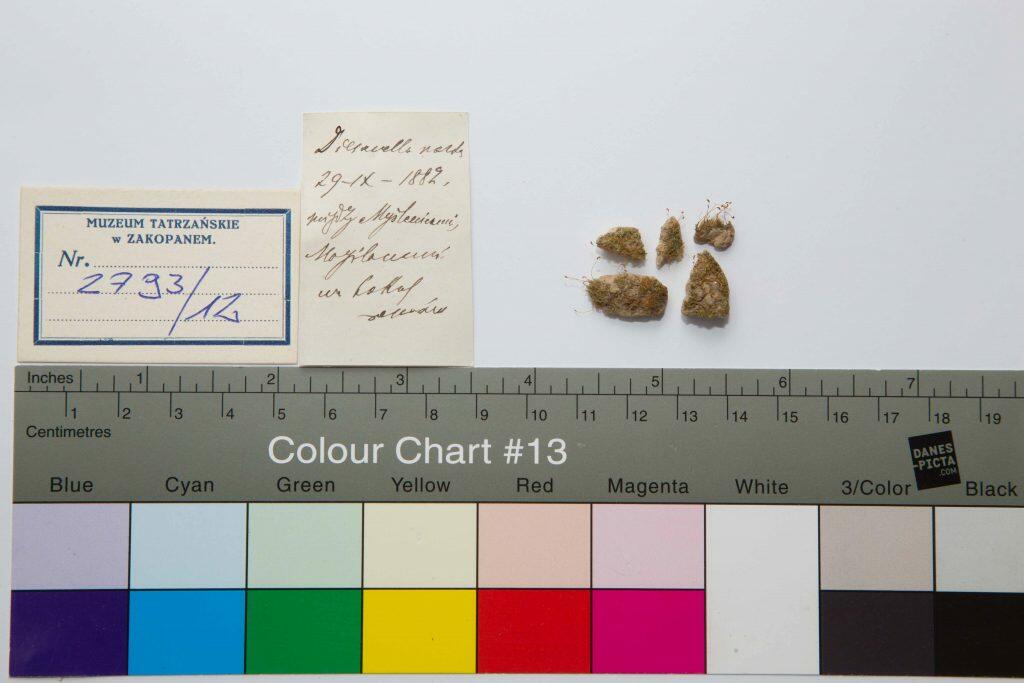 MUZEUM TATRZAŃSKIE
w ZAKOPANEM.
Nr.
2793/12
29-IX-1882,
między Myślenicami,
Inches 1 2 3 4 5 6 7
1 2 3 4 5 6 7 8 9 10 11 12 13 14 15 16 17 18 19
Centimetres
Colour Chart #13
DANES
-PICTA
.COM
Blue Cyan Green Yellow Red Magenta White 3/Color Black